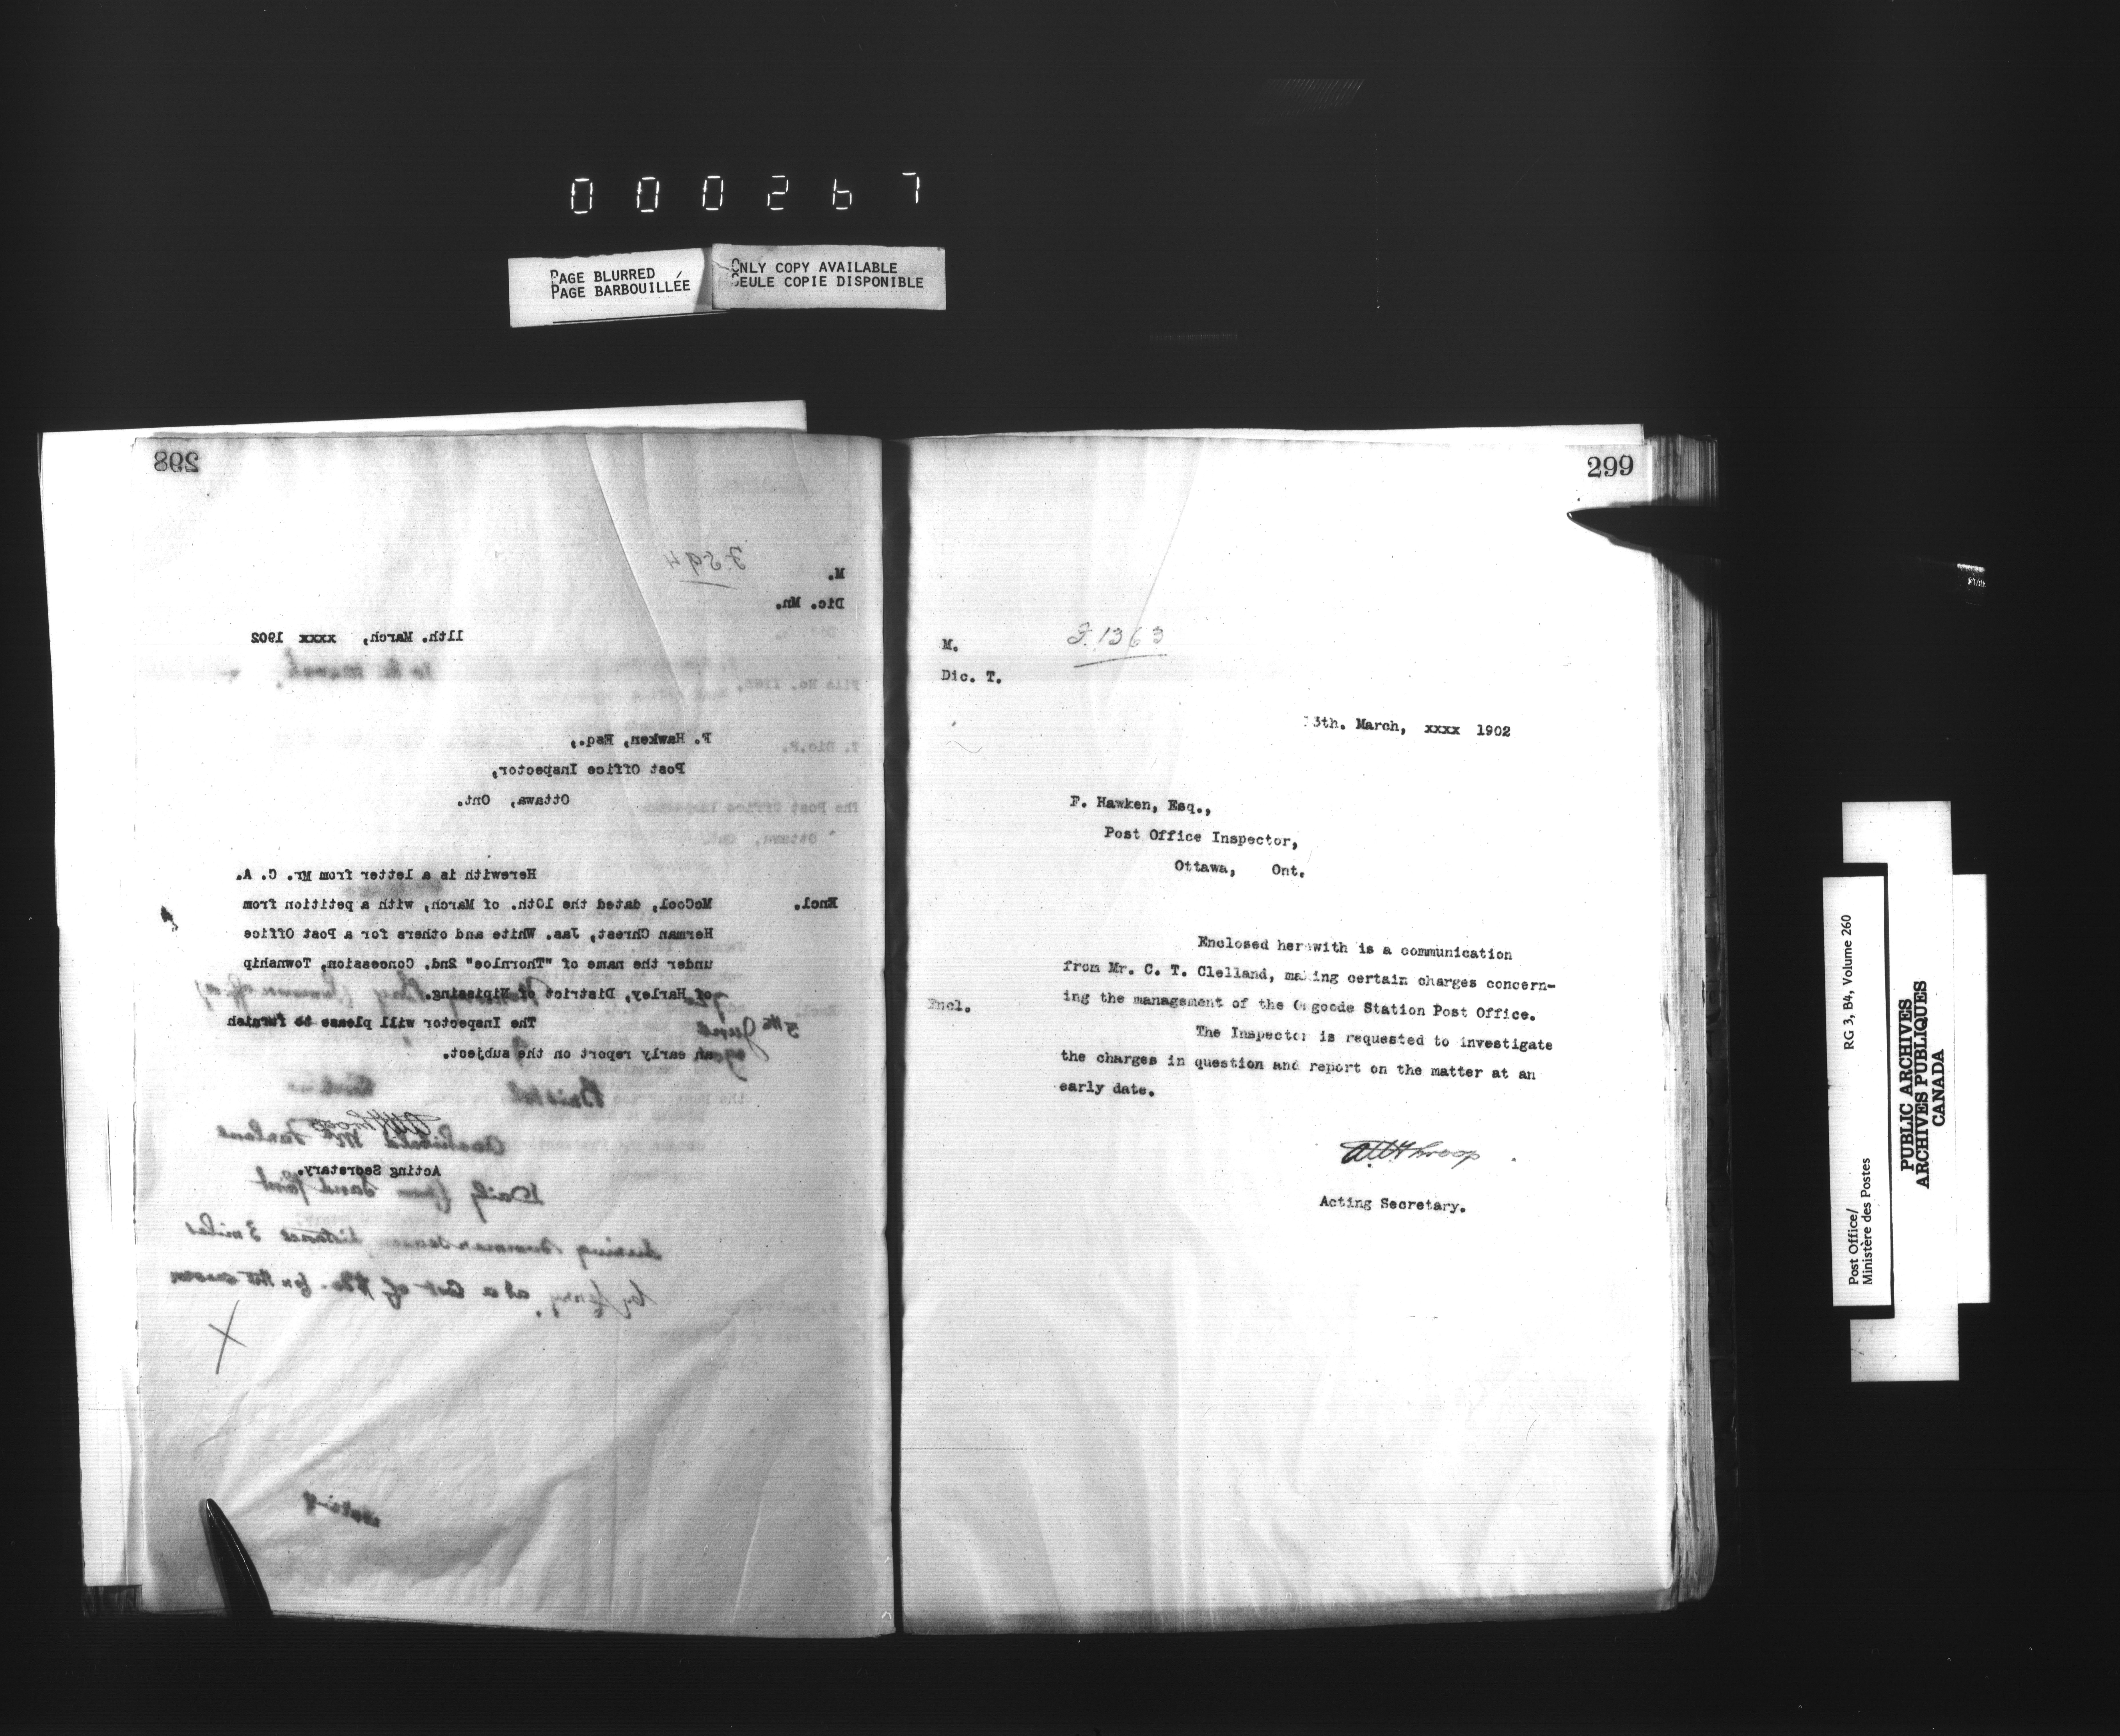 000267
PAGE BLURRED
PAGE BARBOUILLÉE
ONLY COPY AVAILABLE
SEULE COPIE DISPONIBLE
298
F.594
M.
Dic. Mn.
11th. March, xxxx 1902
F. Hawken, Esq.,
Post Office Inspector,
Ottawa, Ont.
Herewith is a letter from Mr. C. A.
Encl. McCool, dated the 10th. of March, with a petition from
Herman Chrest, Jas. White and others for a Post Office
under the name of "Thornloe" 2nd. Concession, Township
of Harley, District of Nipissing.
The Inspector will please to furnish
an early report on the subject.
Acting Secretary.
Daily from Sand Point
during summer season distance 3 miles
by ferry, at a cost of
299
F.1363
M.
Dic. T.
13th. March, xxxx 1902
F. Hawken, Esq.,
Post Office Inspector,
Ottawa, Ont.
Enclosed herewith is a communication
from Mr. C. T. Clelland, making certain charges concern-
Encl. ing the management of the Osgoode Station Post Office.
The Inspector is requested to investigate
the charges in question and report on the matter at an
early date.
Acting Secretary.
Post Office/
Ministère des Postes
RG 3, B4, Volume 260
PUBLIC ARCHIVES
ARCHIVES PUBLIQUES
CANADA